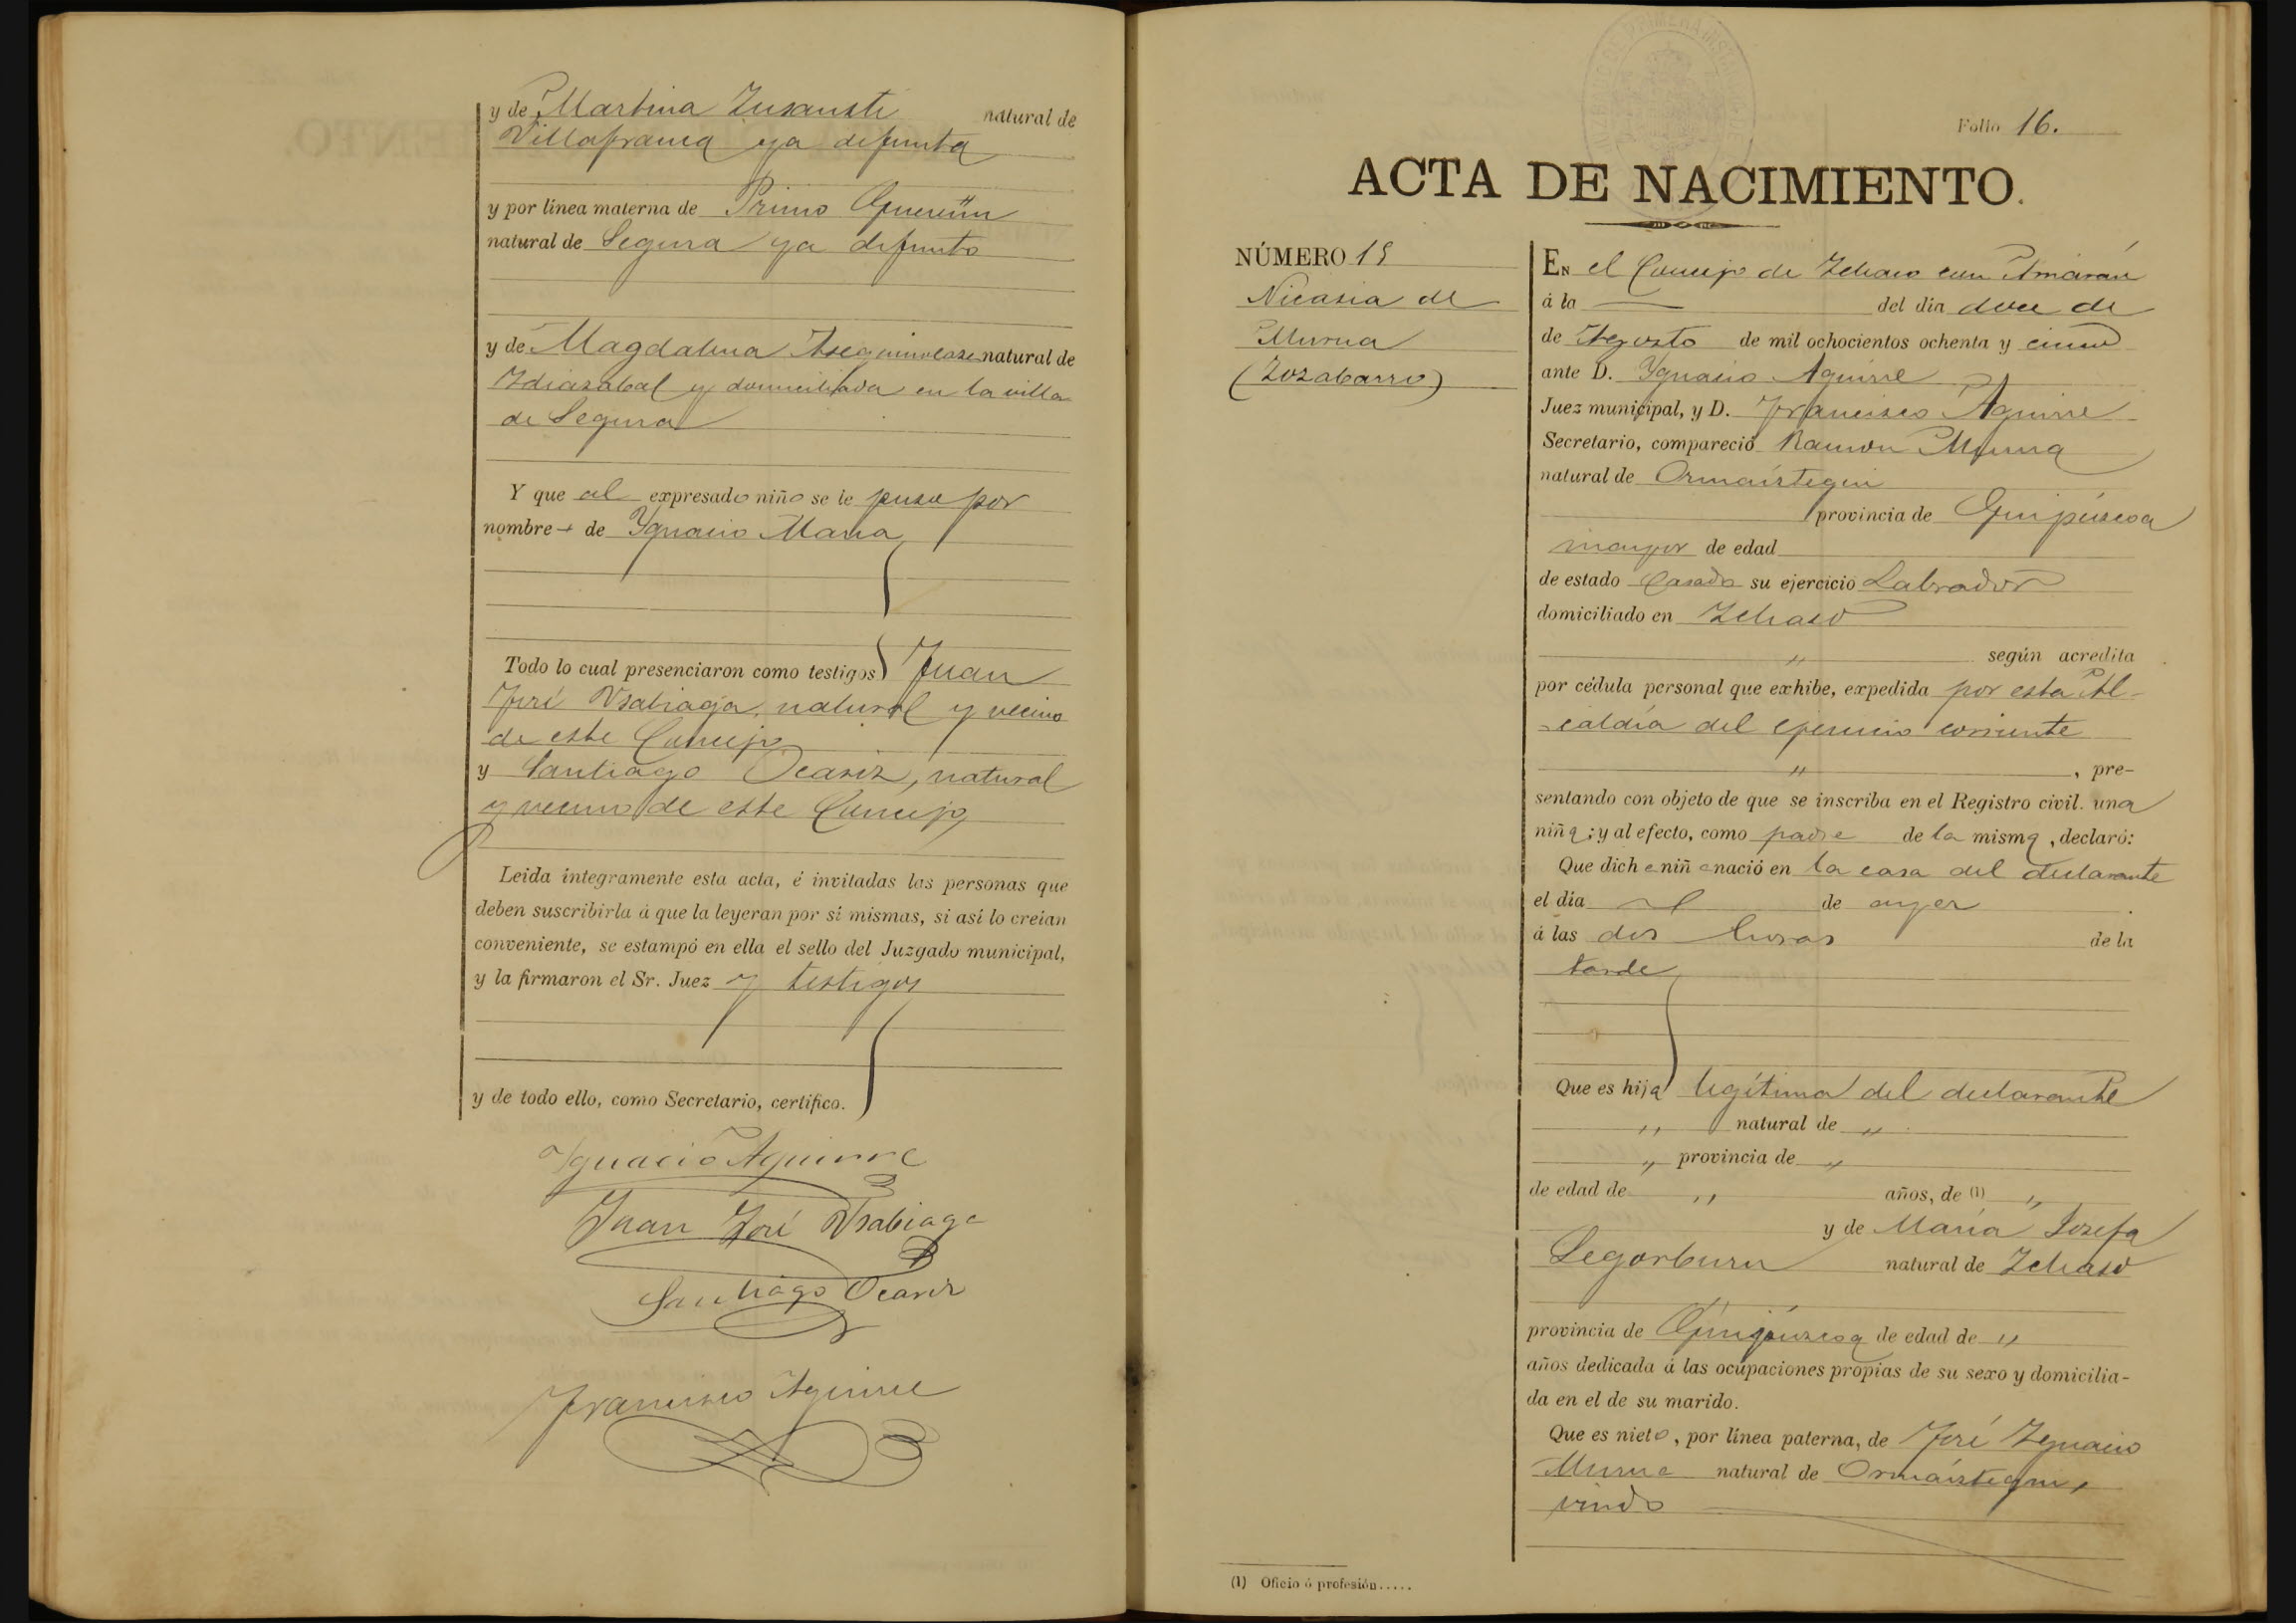 y de Martina Zusausti natural de
Villafranca ya defunta
y por línea materna de Primo Guereñu
natural de Segura ya defunto
y de Magdalena natural de
Idiazabal y domiciliada en la villa
de Segura
Y que al expresado niño se le puso por
nombre de Ygnacio Maria
Todo lo cual presenciaron como testigos Juan
José Usabiaga, natural y vecino
de este Concejo
y Santiago Ocariz, natural
y vecino de este Concejo
Leida íntegramente esta acta, é invitadas las personas que
deben suscribirla á que la leyeran por sí mismas, si así lo creían
conveniente, se estampó en ella el sello del Juzgado municipal,
y la firmaron el Sr. Juez y testigos
y de todo ello, como Secretario, certifico.
Ygnacio Aguirre
Juan José Usabiaga
Santiago Ocariz
Francisco Aguirre
Folio 16.
ACTA DE NACIMIENTO.
NÚMERO 15
Nicasia de
Murua
(Zozabarro)
EN el Concejo de Ichaso con Arriarán
á la del día doce de
de Agosto de mil ochocientos ochenta y cinco
ante D. Ygnacio Aguirre
Juez municipal, y D. Francisco Aguirre
Secretario, compareció Ramon Murua
natural de Ormaíztegui
provincia de Guipúzcoa
mayor de edad
de estado Casado su ejercicio Labrador
domiciliado en Ichaso
" según acredita
por cédula personal que exhibe, expedida por esta Al-
caldía del ejercicio corriente
" , pre-
sentando con objeto de que se inscriba en el Registro civil. una
niña; y al efecto, como padre de la misma, declaró:
Que dicha niña nació en la casa del declarante
el día de ayer
á las dos horas de la
tarde
Que es hija legítima del declarante
" natural de "
" provincia de "
de edad de " años, de (1) "
y de María Josefa
Legorburu natural de Ichaso
provincia de Guipúzcoa de edad de "
años dedicada á las ocupaciones propias de su sexo y domicilia-
da en el de su marido.
Que es nieto, por línea paterna, de José Ygnacio
Murua natural de Ormáiztegui,
viudo
(1) Oficio ó profesión.....